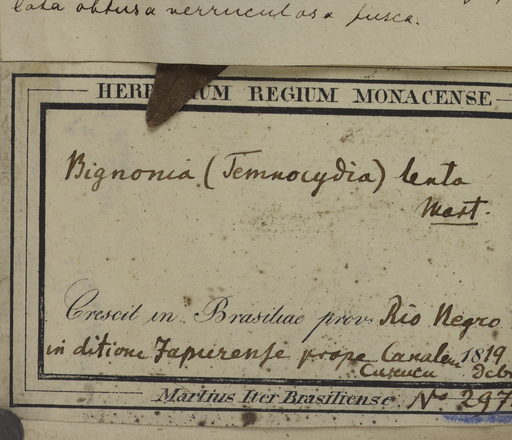 lata obtusa verruculosa fusca.
HERB UM REGIUM MONACENSE
Bignonia (Temnocydia) lenta
Mart.
Crescit in Brasiliae prov. Rio Negro
in ditione Japurense prope Canaleu 1819
Cuxucu Debr
Martius Iter Brasiliense No 297